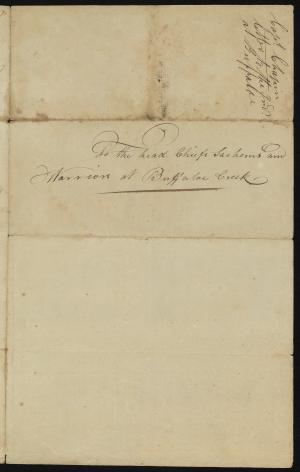 Capt. Chapin
Letter to the Inds.
at Buffaloe
To the head Chiefs Sachems and
Warriors at Buffaloe Creek.